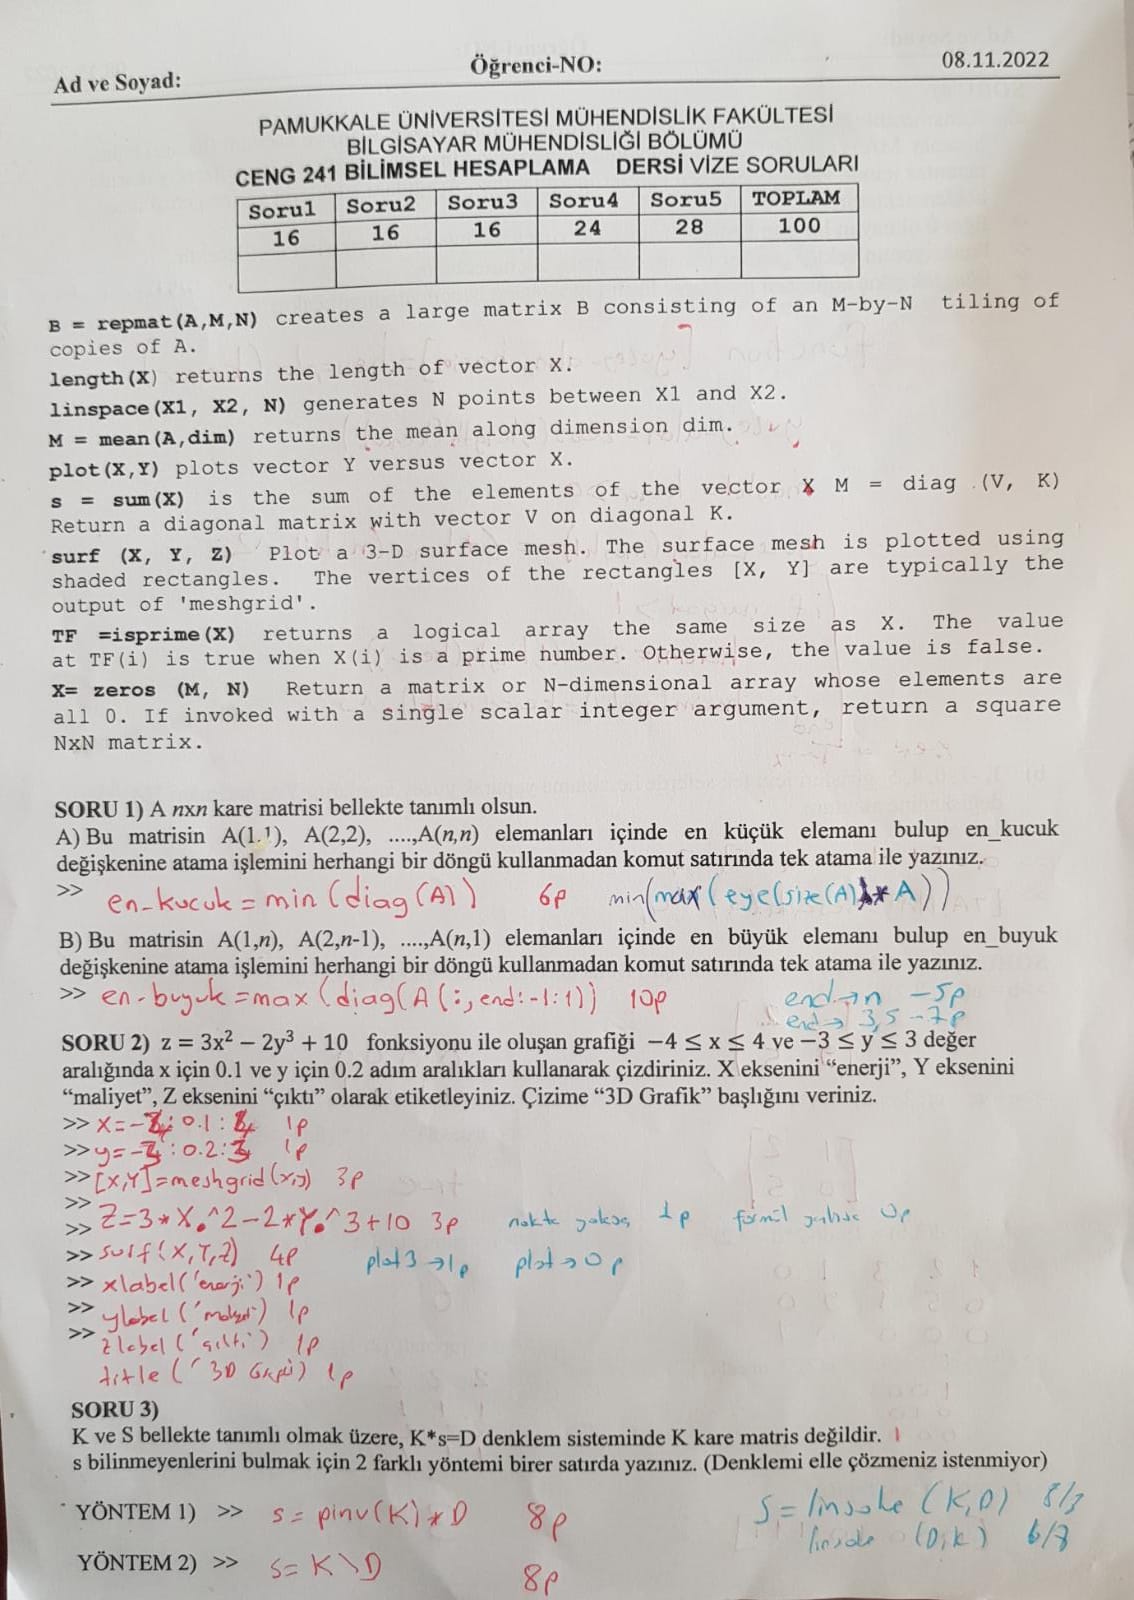 Ad ve Soyad: Öğrenci-NO: 08.11.2022
PAMUKKALE ÜNİVERSİTESİ MÜHENDİSLİK FAKÜLTESİ
BİLGİSAYAR MÜHENDİSLİĞİ BÖLÜMÜ
CENG 241 BİLİMSEL HESAPLAMA DERSİ VİZE SORULARI
Soru1 Soru2 Soru3 Soru4 Soru5 TOPLAM
16 16 16 24 28 100
B = repmat(A,M,N) creates a large matrix B consisting of an M-by-N tiling of
copies of A.
length(X) returns the length of vector X.
linspace(X1, X2, N) generates N points between X1 and X2.
M = mean(A,dim) returns the mean along dimension dim.
plot(X,Y) plots vector Y versus vector X.
s = sum(X) is the sum of the elements of the vector X M = diag (V, K)
Return a diagonal matrix with vector V on diagonal K.
surf (X, Y, Z) Plot a 3-D surface mesh. The surface mesh is plotted using
shaded rectangles. The vertices of the rectangles [X, Y] are typically the
output of 'meshgrid'.
TF =isprime(X) returns a logical array the same size as X. The value
at TF(i) is true when X(i) is a prime number. Otherwise, the value is false.
X= zeros (M, N) Return a matrix or N-dimensional array whose elements are
all 0. If invoked with a single scalar integer argument, return a square
NxN matrix.
SORU 1) A nxn kare matrisi bellekte tanımlı olsun.
A) Bu matrisin A(1,1), A(2,2), ....,A(n,n) elemanları içinde en küçük elemanı bulup en_kucuk
değişkenine atama işlemini herhangi bir döngü kullanmadan komut satırında tek atama ile yazınız.
>> en_kucuk = min (diag(A)) 6p min(max(eye(size(A)).*A))
B) Bu matrisin A(1,n), A(2,n-1), ....,A(n,1) elemanları içinde en büyük elemanı bulup en_buyuk
değişkenine atama işlemini herhangi bir döngü kullanmadan komut satırında tek atama ile yazınız.
>> en-buyuk = max (diag(A(:,end:-1:1)) 10p end→n -5p
end→ 3,5 -7p
SORU 2) z = 3x² − 2y³ + 10 fonksiyonu ile oluşan grafiği −4 ≤ x ≤ 4 ve −3 ≤ y ≤ 3 değer
aralığında x için 0.1 ve y için 0.2 adım aralıkları kullanarak çizdiriniz. X eksenini “enerji”, Y eksenini
“maliyet”, Z eksenini “çıktı” olarak etiketleyiniz. Çizime “3D Grafik” başlığını veriniz.
>> x=-4:0.1:4 1p
>> y=-3:0.2:3 1p
>> [X,Y]=meshgrid(x,y) 3p
>>
>> Z=3*X.^2-2*Y.^3+10 3p nokta yoksa 1p formül 0p
>> surf(X,Y,Z) 4p plot3→1p plot→0p
>> xlabel('enerji') 1p
>> ylabel('maliyet') 1p
>> zlabel('çıktı') 1p
title('3D Grafik) 1p
SORU 3)
K ve S bellekte tanımlı olmak üzere, K*s=D denklem sisteminde K kare matris değildir.
s bilinmeyenlerini bulmak için 2 farklı yöntemi birer satırda yazınız. (Denklemi elle çözmeniz istenmiyor)
YÖNTEM 1) >> s= pinv(K)*D 8p S=linsolve (K,D)
linsolve (D,K)
YÖNTEM 2) >> s= K\D 8p